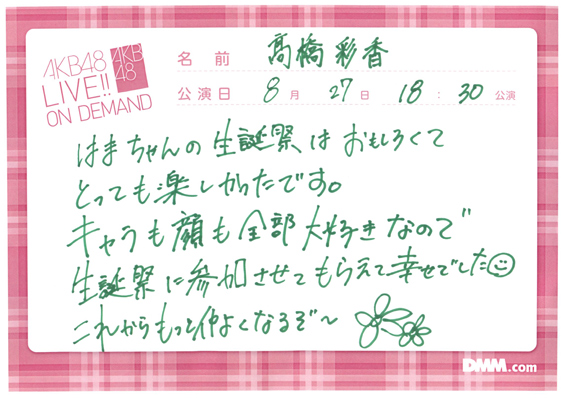 AKB48
LIVE!!
ON DEMAND
AKB
48
名前 高橋彩香
公演日 8月27日 18:30公演
はまちゃんの生誕祭はおもしろくて
とっても楽しかったです。
キャラも顔も全部大好きなので
生誕祭に参加させてもらえて幸せでした
これからもっと仲よくなるぞ~
DMM.com